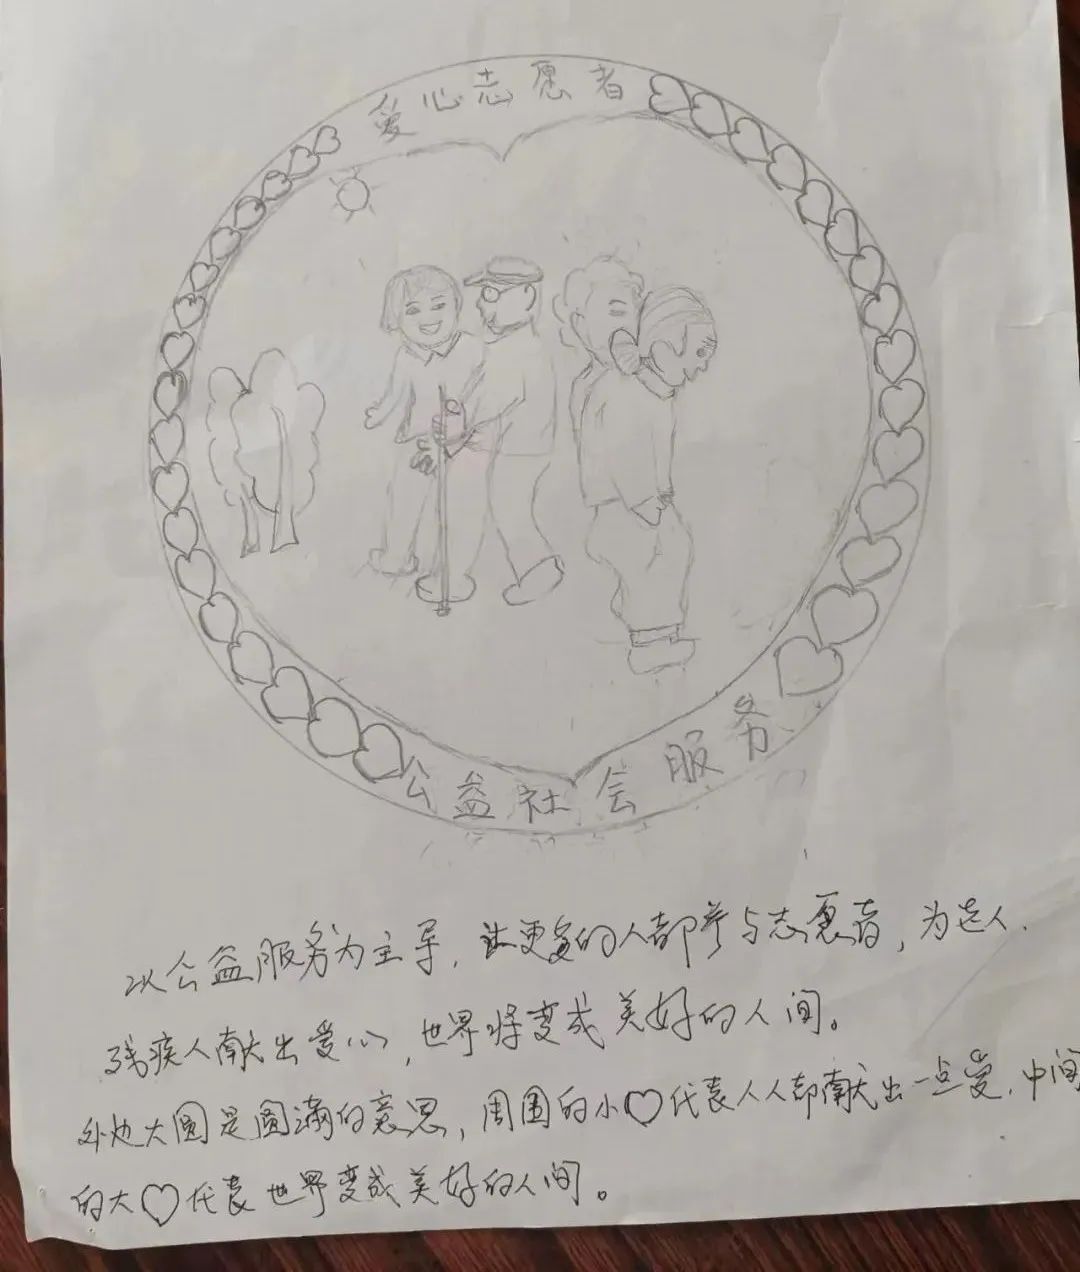 爱心志愿者
公益社会服务
以公益服务为主导，让更多的人都参与志愿者，为老人、
残疾人献出爱心，世界将变成美好的人间。
外边大圆是圆满的意思，周围的小♡代表人人都献出一点爱，中间
的大♡代表世界变成美好的人间。